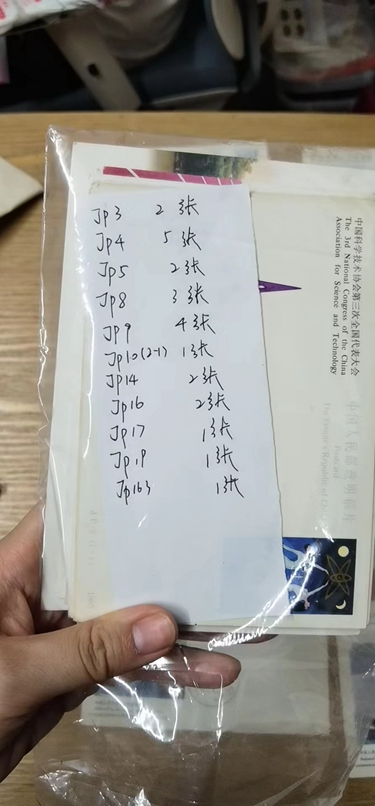 Jp3 2张
Jp4 5张
Jp5 2张
Jp8 3张
Jp9 4张
Jp10(2-1) 1张
Jp14 2张
Jp16 2张
Jp17 1张
Jp19 1张
Jp163 1张
中国科学技术协会第三次全国代表大会
The 3rd National Congress of the China
Association for Science and Technology